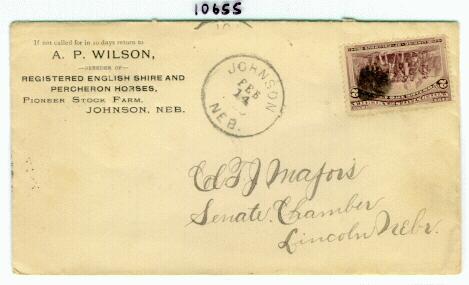 10655
If not called for in 10 days return to
A. P. WILSON,
—BREEDER OF—
REGISTERED ENGLISH SHIRE AND
PERCHERON HORSES,
PIONEER STOCK FARM,
JOHNSON, NEB.
JOHNSON
FEB
14
NEB.
2 2
T J Majors
Senate Chamber
Lincoln Nebr.